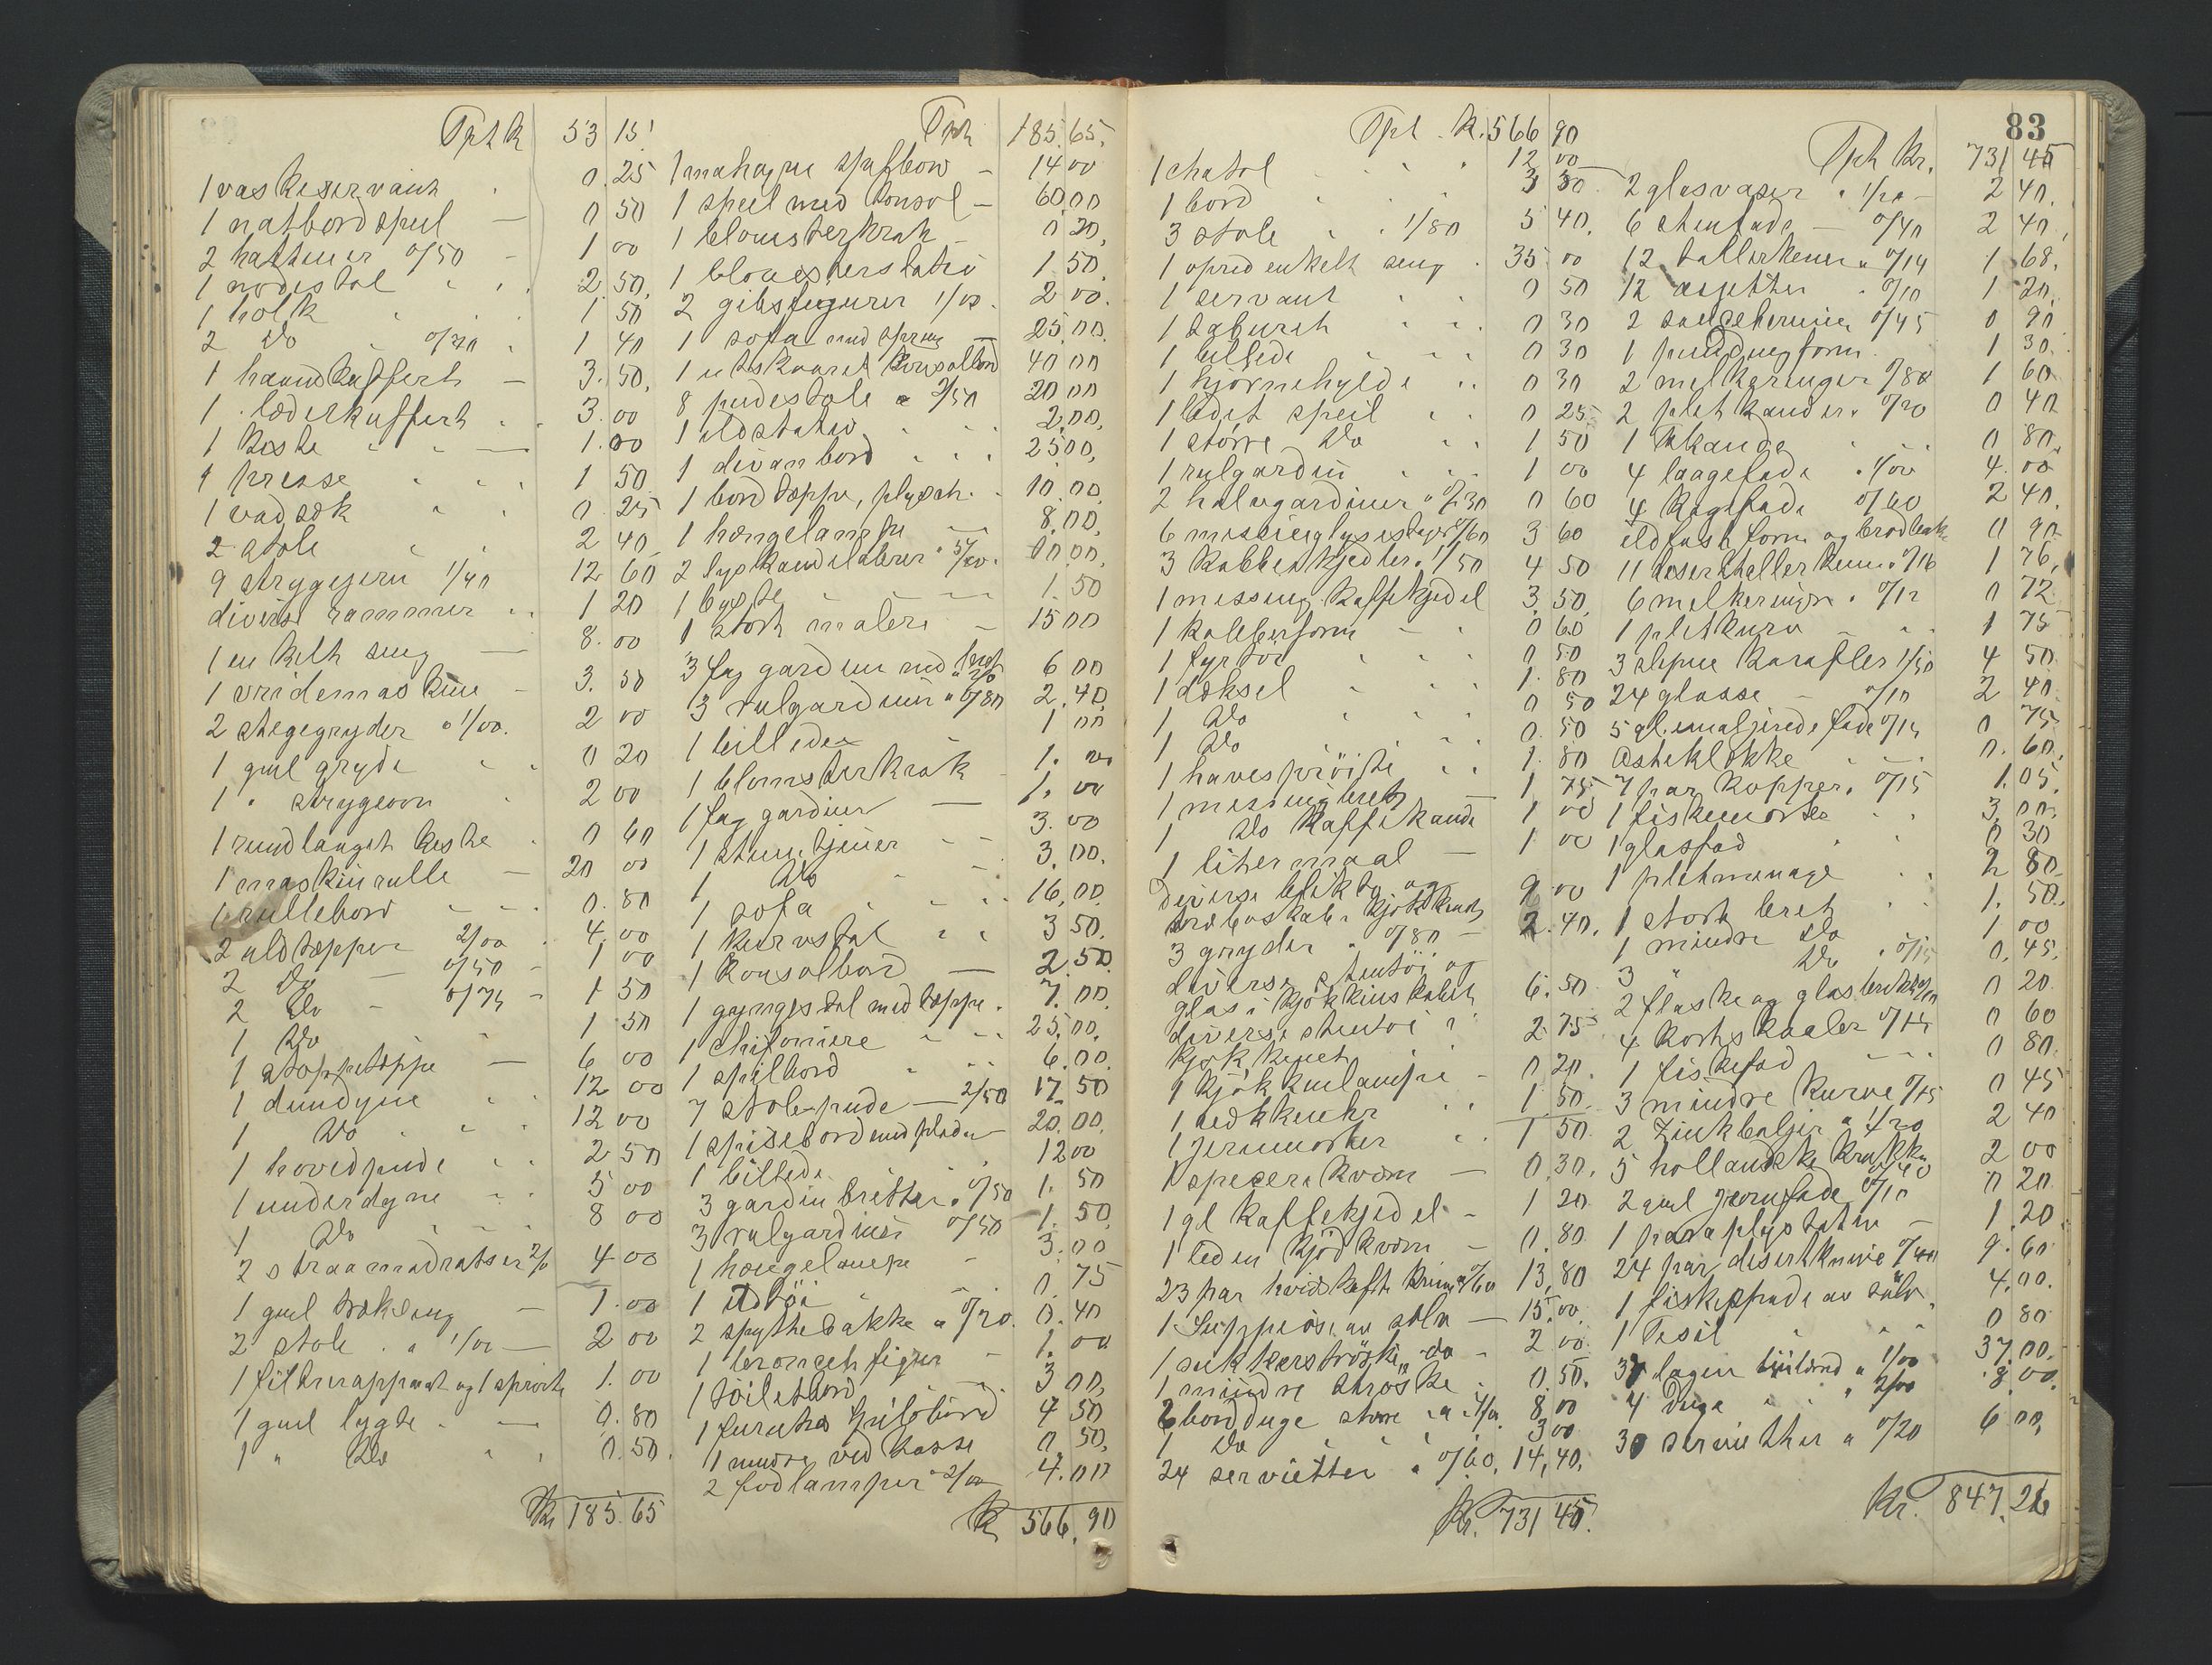 Tpt k 53 15
1 vaskeservant 0.25
1 natbordspeil — 0 50
2 hattener 0/50 — 1 00
1 nodestol 2 50
1 holk 1 50
2 do 0/70 1 40
1 haandkuffert — 3.50
1 læderkuffert 3.00
1 kiste — 1.00
1 presse 1 50
1 vadsæk 0.25
2 stole 2 40
9 strygejern 1/40 12 60
diverse rammer 1 20
1 enkelt seng — 8.00
1 vridemaskine — 3.50
2 stegegryder a 1/00. 2 00
1 gml gryde 0 20
1 " strygeovn 2 00
1 rundlauget kiste 0 60
1 maskinrulle — 20 00
1 rullebord 0.80
2 uldtæpper 2/00 4 00
2 do — 0/50 — 1 00
2 do — 0/75 — 1 50
1 do 1 50
1 stoppetæppe — 6 00
1 dundyne 12 00
1 do 12 00
1 hovedpude 2 50
1 underdyne 5 00
1 do 8 00
2 straamadratser 2/0 4 00
1 gml trækseng — 1.00
2 stole a 1/00 — 2 00
1 filtrerapparat og 1 sprøite 1.00
1 gml lygte — 0.80
1 " do 0.50
Kr 185.65
Tpt 185.65
1 mahogni spisebord — 14 00
1 speil med konsol — 60 00
1 blomsterkrak — 0 20
1 blomsterstativ 1 50
2 gibsfigurer 1/00 2 00
1 sofa med spring — 25.00
1 utskaaret konsolbord 40 00
8 pudestole a 2/50 20 00
1 ildstativ 2.00
1 divanbord 25 00
1 bordtæppe, plysch 10.00
1 hængelampe — 8.00
2 lyskandelabrer a 5/00 10.00
1 byste — 1.50
1 stort maleri — 15 00
3 fag gardiner med bret a 2/0 6 00
3 rulgardiner a 0/80 2.40
1 billede 1 00
1 blomsterkrak 1. 00
1 fag gardiner — 1. 00
1 stumtjener 3.00
1 do 3.00
1 sofa 16,00
1 kurvstol 3 50
1 konsolbord — 2.50
1 gyngestol med tæppe 7.00
1 chifoniere 25.00
1 spilbord 6.00
7 stolepude — 2/50 17.50
1 spisebord med plader 20.00
1 billede 12 00
3 gardinbretter a 0/50 1. 50
3 rulgardiner 0/50 1.50
1 hængelampe — 3.00
1 ildtöi 0.75
2 spyttebakke a 0/20 0.40
1 broncet figur — 1.00
1 toiletbord 3 00
1 furutræ spilsbord 4 50
1 mindre ved kasse 0.50
2 fodlamper a 2/00 4.00
Kr 566.90
Tpt k. 566 90
1 chatol 12 00
1 bord 3 30
3 stole 1/80 5 40
1 opred enkelt seng 35.00
1 servant 0 50
1 taburet 0 30
1 billede 0 30
1 hjörnehylde 0 30
1 lidet speil 0 25
1 större do 1 50
1 rulgardin 1 00
2 halvgardiner a 0/30 0 60
6 messinglysestager 0/60 3 60
3 kobberkjedler 1/50 4 50
1 messing kaffekjedel 3.50
1 kobberform — 0 60
1 fyrtöi 0 50
1 dæksel 1.80
1 do 0 50
1 do 0.50
1 havesprøite 1.80
1 messingbret 1 75
1 do kaffekande 1 00
1 litermaal — 1 00
diverse bliktöi og
trævaskeri kjökkenet 9 00
3 gryder a 0/80 — 2.40
diverse stentöi og
glas i kjökkenskabet 6.50
diverse stentöi i
kjökkenet 2 75
1 kjökkenlampe — 0 20
1 vedkurv 1.50
1 jernmorter 1 50
1 speserikværn — 0.30
1 gl kaffekjedel — 1 20
1 liden kjödkværn — 0.80
23 par hvidskaft kniver 0/60 13,80
1 Suppeöse av sölv — 15.00
1 sukkerströske do — 2 00
1 mindre ströske 0.50
2 bordduge større a 4/0 8.00
1 do 3 00
24 servietter a 0/60 14,40
Kr. 731 45
83
Tpt Kr. 731 45
2 glasvaser a 1/20 — 2 40
6 stenfade — 0/40 2 40
12 tallerkener a 0/14 1 68
12 asjetter 0/10 1 20
2 sauceterriner 0/45 0 90
1 puddingform 1 30
2 melkeringer 0/80 1 60
2 pletkander 0/20 0 40
1 kande 0 80
4 laagefade 1/00 4.00
4 kagefade 0/60 2 40
ildfast form og brødbakke 0 90
11 deserttallerkener 0/16 1 76
6 melkeringer 0/12 0 72
1 pletkurv 1 75
3 slepne karafler 1/50 4 50
24 glasse — 0/10 2 40
5 gl. emaljerede fade 0/15 0 75
Osteklokke 0.60
7 par kopper 0/15 1.05
1 fiskemorter 3.00
1 glasfad 0 30
1 pletmenage 2 80
1 stort bret 1.50
1 mindre do 1 00
3 " do 0/15 0.45
2 flaske og glasbrikker 0/10 0 20
4 kortskaaler 0/15 0 60
1 fiskefad 0 80
3 mindre kurve 0/15 0 45
2 Zinkbaljer a 1/20 2 40
5 hollandske krukker 0/40 2 00
2 gml jernfade 0/10 0 20
1 paraplystativ — 1.20
24 par desertknive 0/40 9.60
1 fiskespade av sölv 4.00
1 Tesil 0 80
37 lagen 1/00 37.00
4 Duge 2/00 8.00
30 servietter a 0/20 6 00
Kr. 847.26